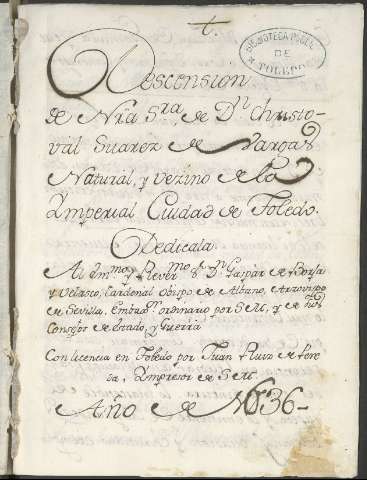 BIBLIOTECA PUBL.
DE
TOLEDO
Descension
de Nrã Srã. de Dn. Christo-
val Suarez de Vargas
Natural, y vezino de la
Ymperial Ciudad de Toledo.
Dedicala.
Al Ymmo. y Rever.mo Sr. Dn. Gaspar de Borja
y Velasco, Cardenal Obispo de Albano, Arzovispo
de Sevilla, Embaxor. ordinario por S M, y de sus
Consejos de Estado, y Guerra
Con licencia en Toledo por Juan Ruiz de Pere
da, Ympresor de S M.
Año de 1636-